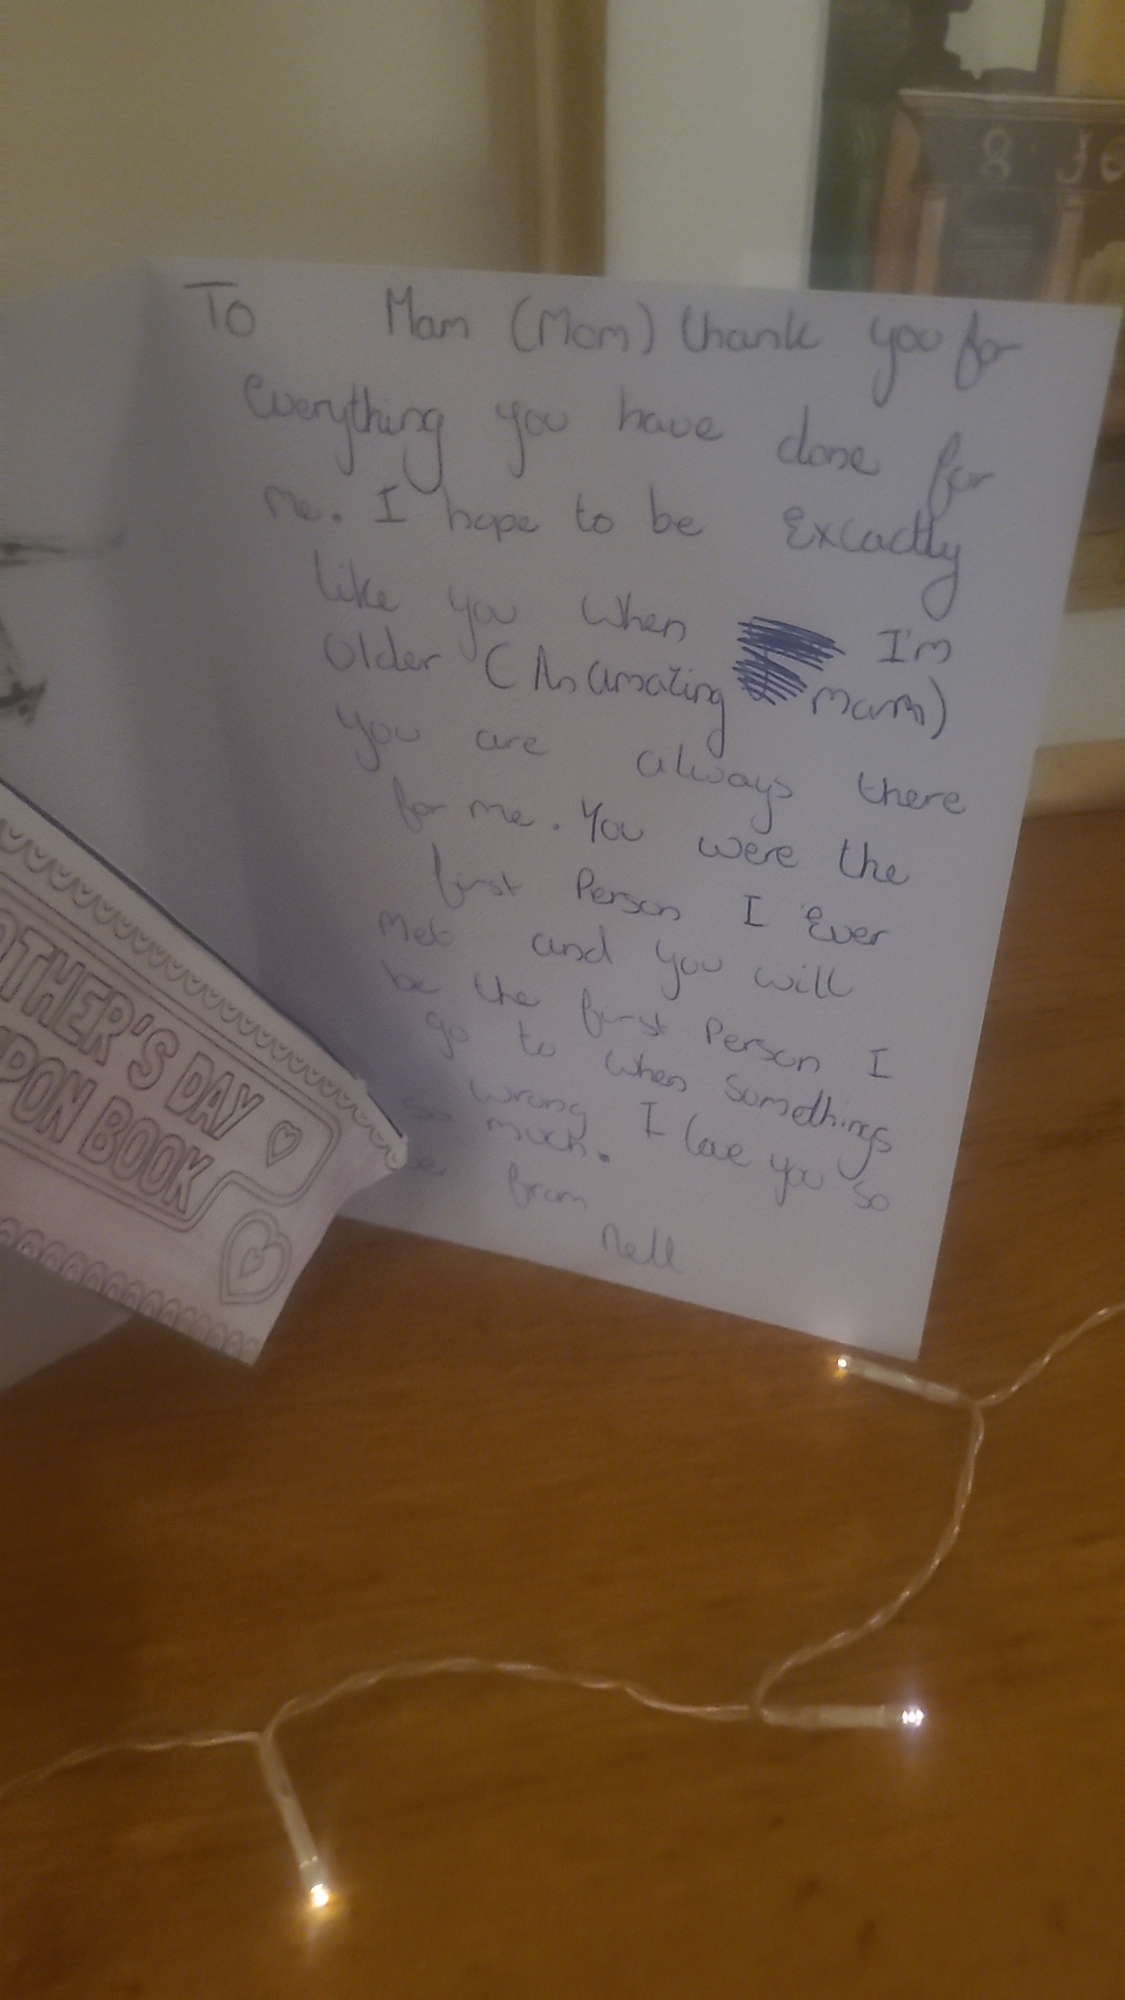 8 30
To Mam (Mom) thank you for
Everything you have done for
me. I hope to be Excactly
like you when I'm
older (An amazing mam)
you are always there
for me. You were the
first Person I Ever
Met and you will
be the first Person I
go to when somethings
wrong I love you so
so much.
from
Nell
OTHER'S DAY
PON BOOK